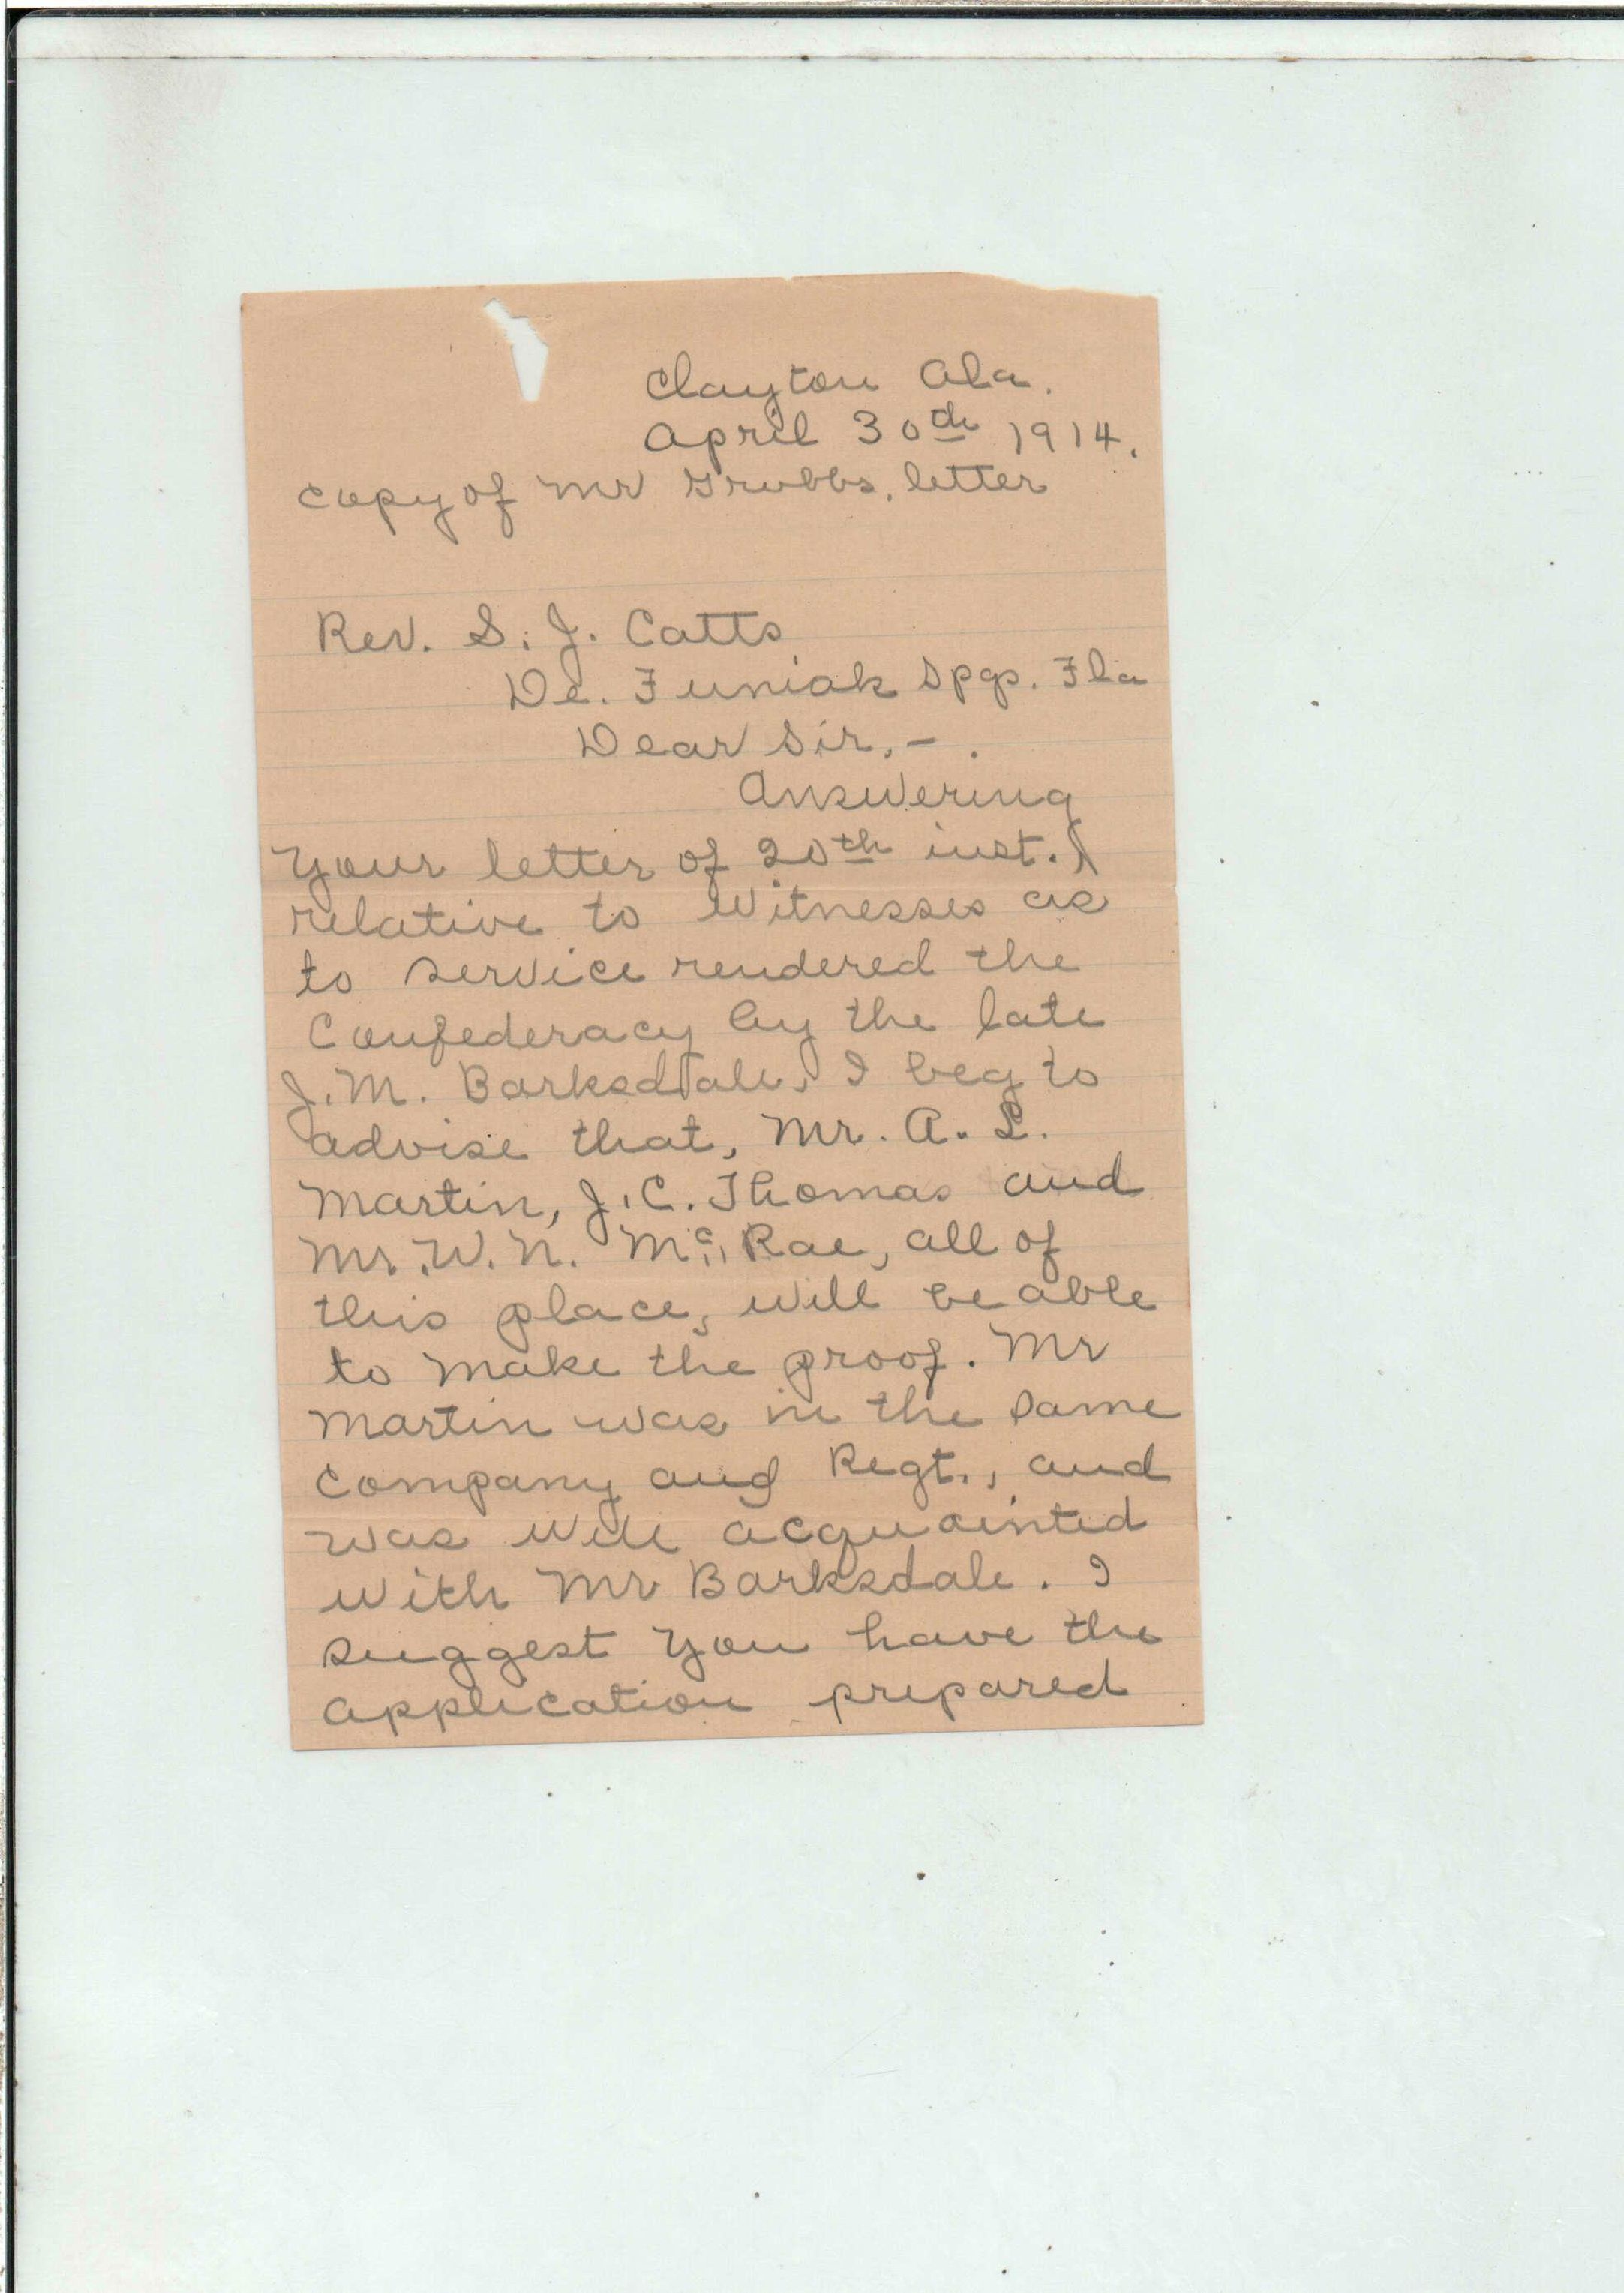 Clayton Ala.
April 30th 1914.
Copy of Mr Grubbs, letter
Rev. S. J. Catts
De. Funiak Spgs. Fla
Dear Sir, -.
Answering
your letter of 20th inst.
relative to witnesses as
to service rendered the
Confederacy by the late
J. M. Barksdale, I beg to
advise that, Mr. A. L.
Martin, J. C. Thomas and
Mr. W. N. Mc Rae, all of
this place, will be able
to make the proof. Mr
Martin was in the same
Company and Regt., and
was well acquainted
with Mr Barksdale. I
suggest you have the
application prepared